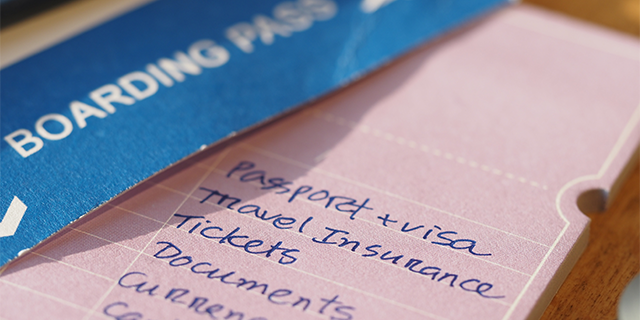 BOARDING PASS
Passport + visa
Travel Insurance
Tickets
Documents